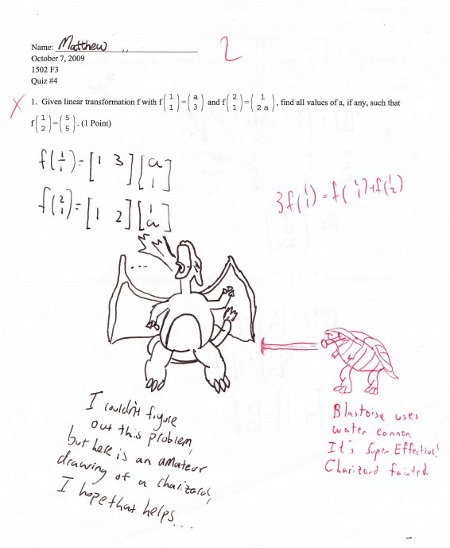 Name: Matthew
2
October 7, 2009
1502 F3
Quiz #4
X 1. Given linear transformation f with f(1 1)=(a 3) and f(2 1)=(1 2a), find all values of a, if any, such that
f(1 2)=(5 5). (1 Point)
f(1 1)=[1 3][a 1]
f(2 1)=[1 2][1 a]
3f(1 1)=f( )+f(1 2)
...
I couldn't figure
out this problem,
but here is an amateur
drawing of a charizard,
I hope that helps...
Blastoise uses
water cannon
It's Super Effective!
Charizard fainted.